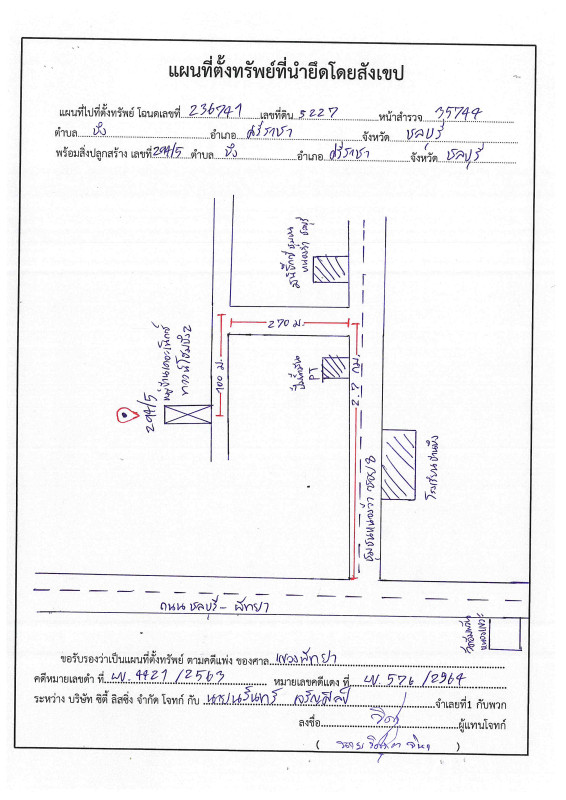 แผนที่ตั้งทรัพย์ที่นำยึดโดยสังเขป
แผนที่ไปที่ตั้งทรัพย์ โฉนดเลขที่ 236741 เลขที่ดิน 5227 หน้าสำรวจ 35744
ตำบล บึง อำเภอ ศรีราชา จังหวัด ชลบุรี
พร้อมสิ่งปลูกสร้าง เลขที่ 294/5 ตำบล บึง อำเภอ ศรีราชา จังหวัด ชลบุรี
270 ม.
100 ม.
2.7 กม.
294/5
หมู่บ้านเดอะเพ็กซ์
ทาวน์โฮมบึง2
ปั๊มน้ำมัน
PT
โรงเรียนบ้านบึง
ซอย 8
ถนน ชลบุรี - พัทยา
ขอรับรองว่าเป็นแผนที่ตั้งทรัพย์ ตามคดีแพ่ง ของศาล แขวงพัทยา
คดีหมายเลขดำ ที่ ผบ. 4421 /2563 หมายเลขคดีแดง ที่ ผบ. 576 /2564
ระหว่าง บริษัท ซิตี้ ลิสซิ่ง จำกัด โจทก์ กับ นายนรินทร์ เจริญศิลป์ จำเลยที่1 กับพวก
ลงชื่อ ผู้แทนโจทก์